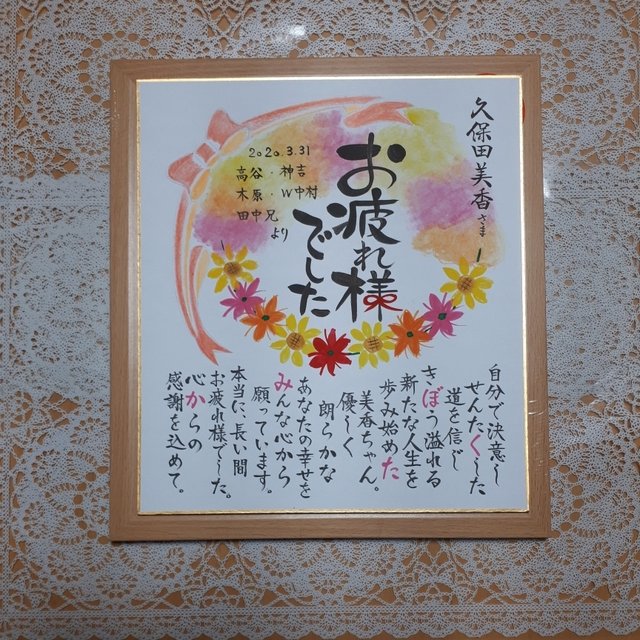 久保田美香さま
お疲れ様
でした
2020.3.31
高谷・神吉
木原・W中村
田中兄
より
自分で決意し
せんたくした
道を信じ
きぼう溢れる
新たな人生を
歩み始めた
美香ちゃん。
優しく
朗らかな
あなたの幸せを
みんな心から
願っています。
本当に、長い間
お疲れ様でした。
心からの
感謝を込めて。